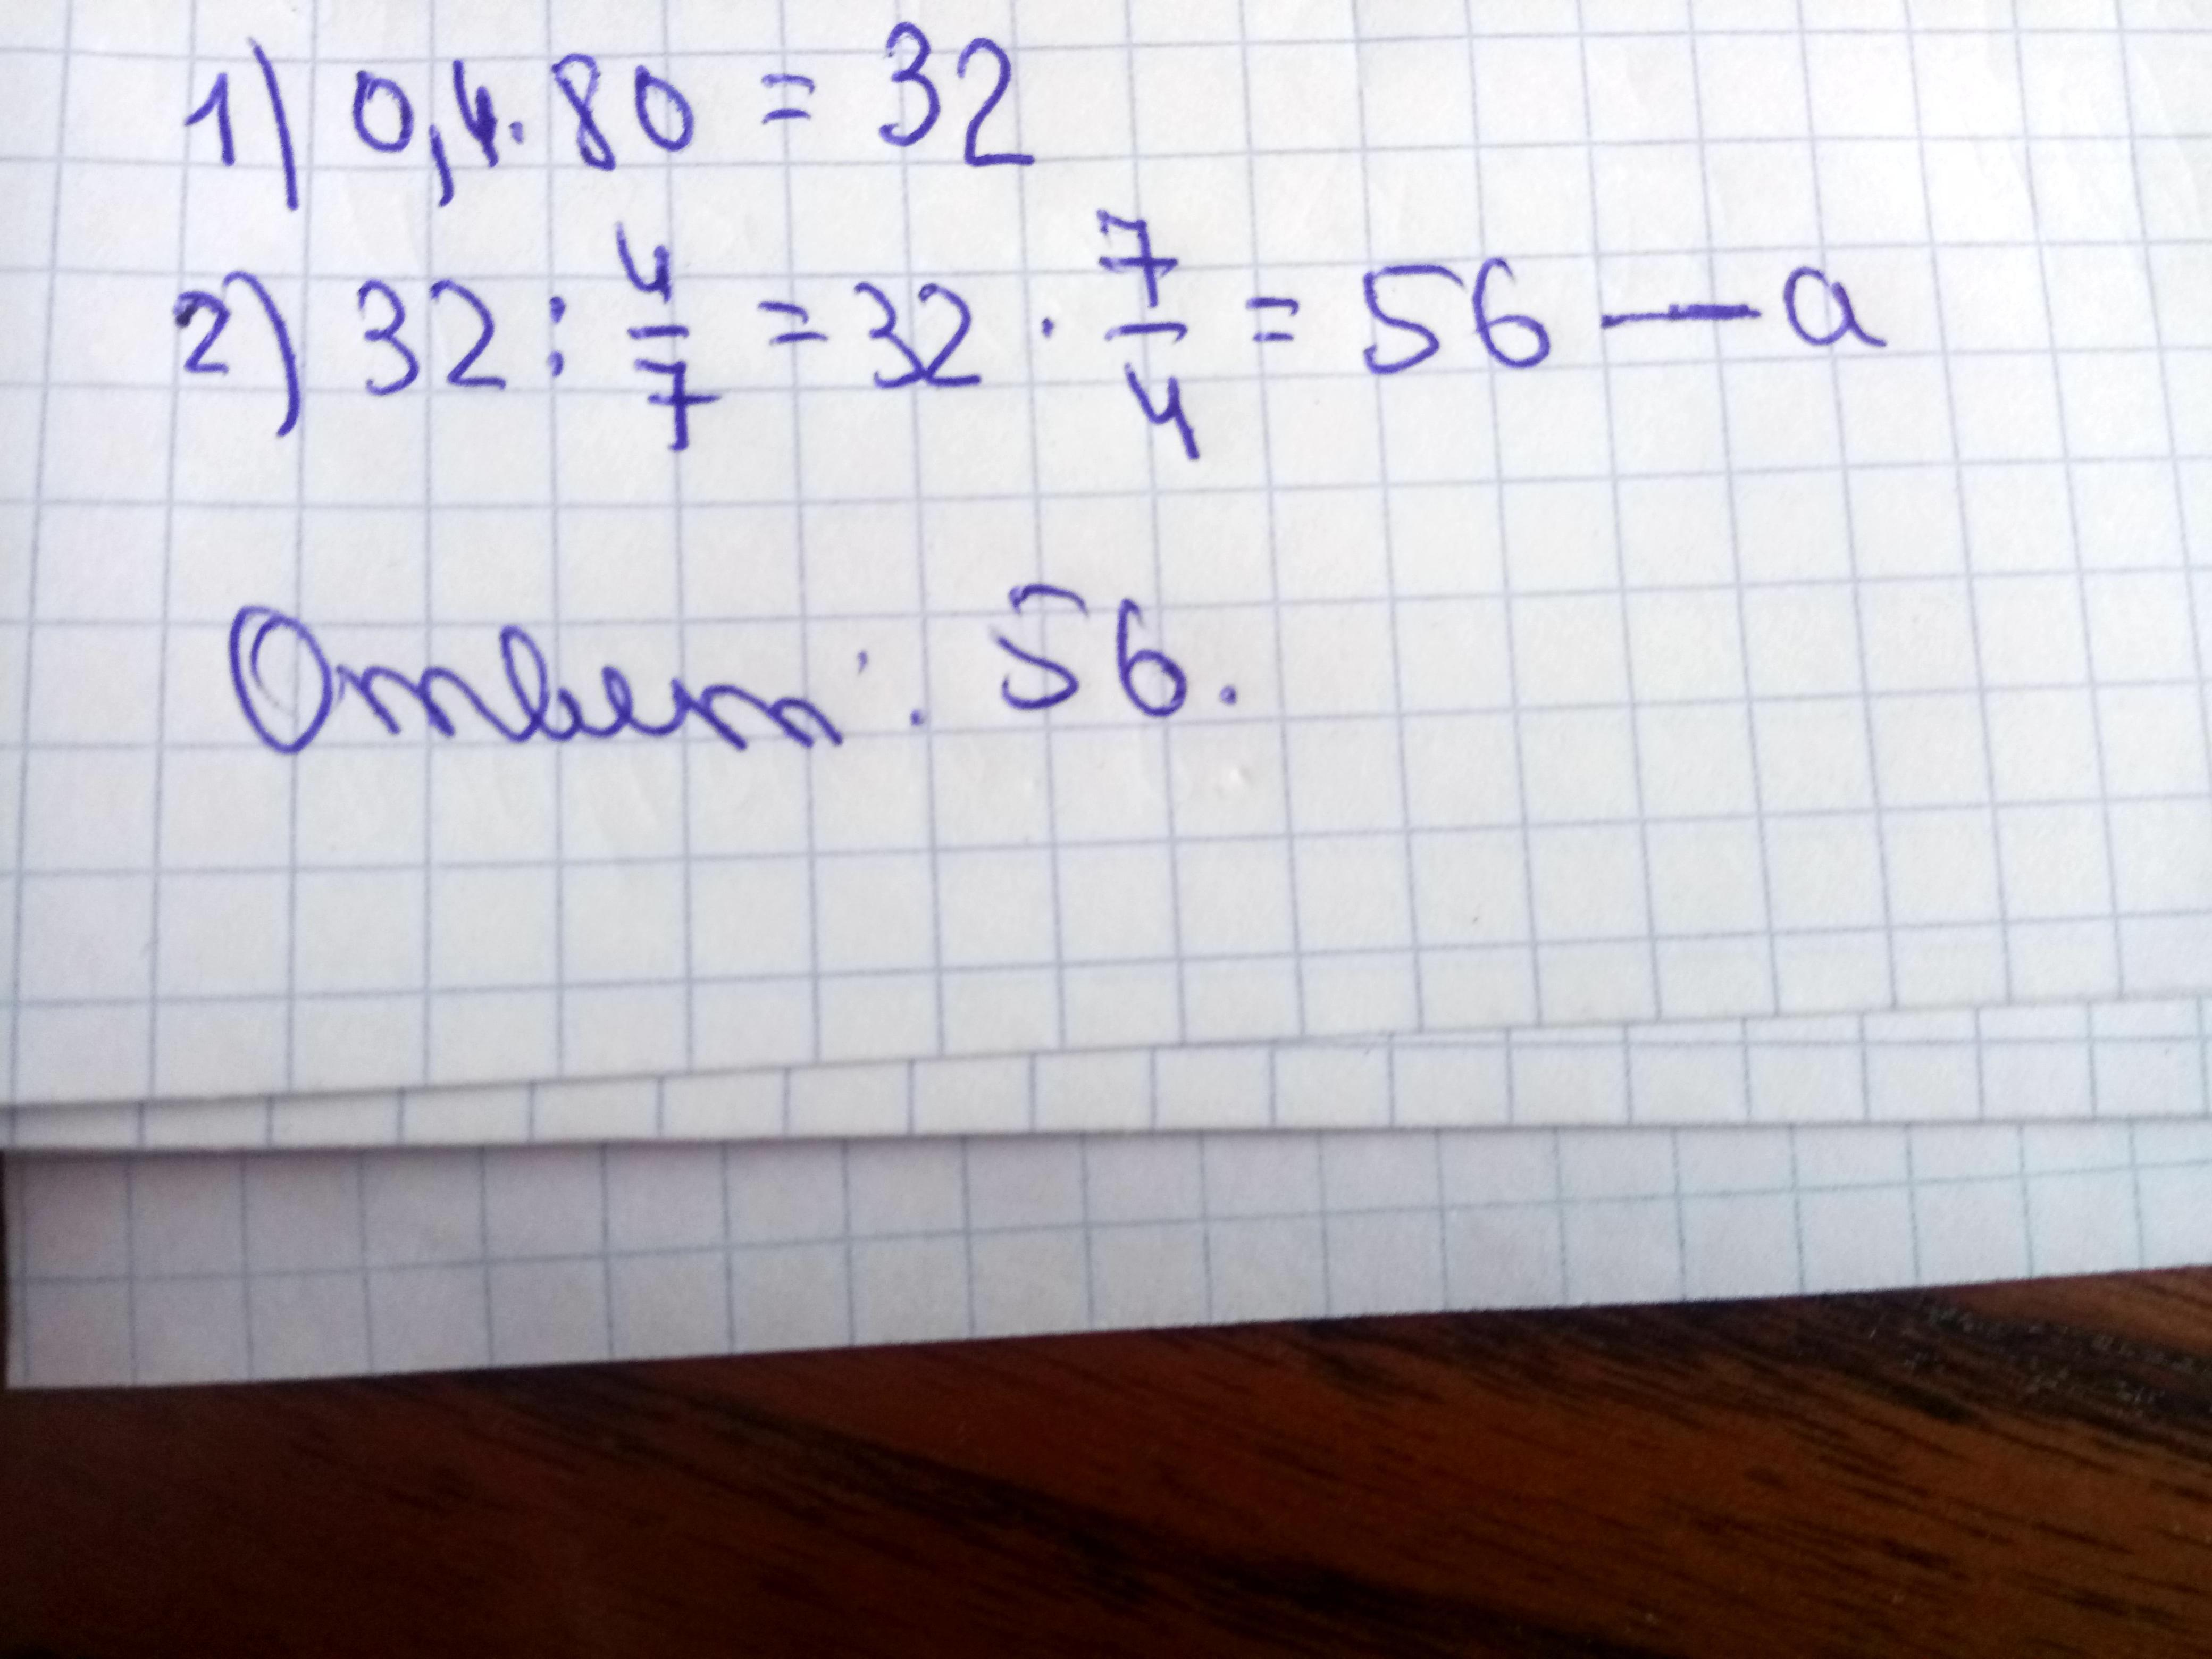 1) 0,4 · 80 = 32
2) 32 : 4/7 = 32 · 7/4 = 56 — а
Ответ: 56.